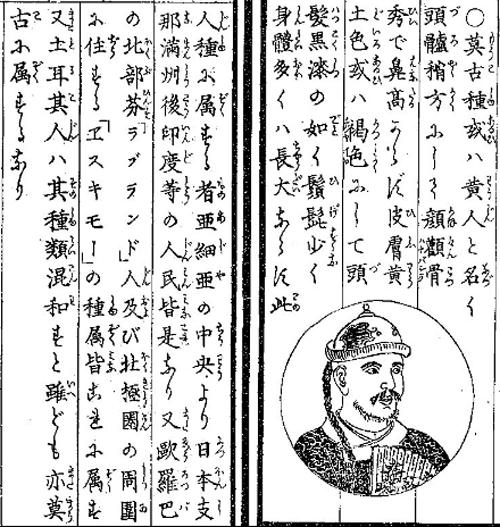 ○莫古種或ハ黄人と名く
頭髗稍方にして顔顴骨
秀で鼻高からず皮膚黄
土色或ハ褐色にして頭
髪黒漆の如く鬚髭少く
身體多くハ長大ならず此
人種に属する者亜細亜の中央より日本支
那満州後印度等の人民皆是なり又歐羅巴
の北部芬「ラプランド」人及び北極圏の周圍
に住する「ヱスキモー」の種属皆これに属す
又土耳其人ハ其種類混和すと雖ども亦莫
古に属するなり